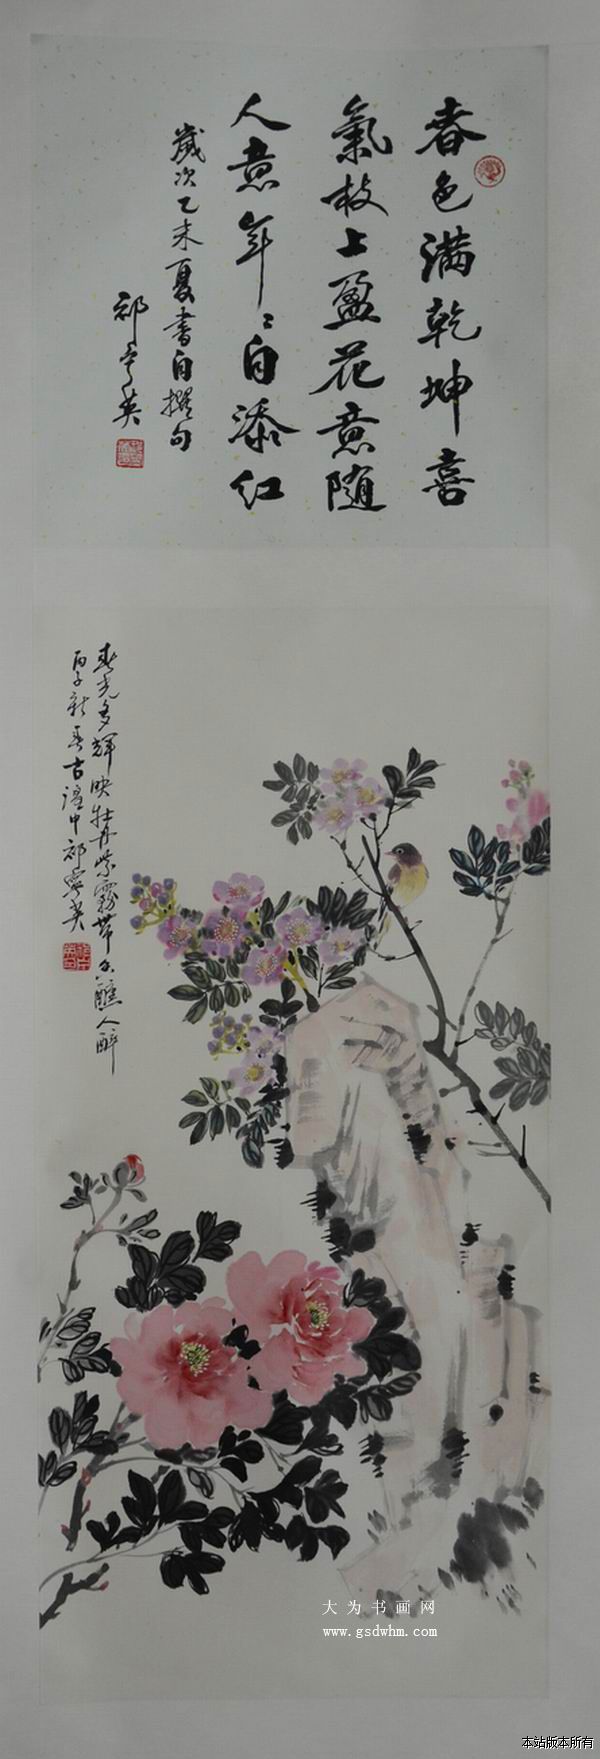 春色满乾坤喜
氣枝上盈花意随
人意年〻自添红
歲次乙未夏書自撰句
祁寧英
春光多輝映牡丹紫霧带香醺人醉
丙子新春古潭中祁寧英
大为书画网
www.gsdwhm.com
本站版本所有